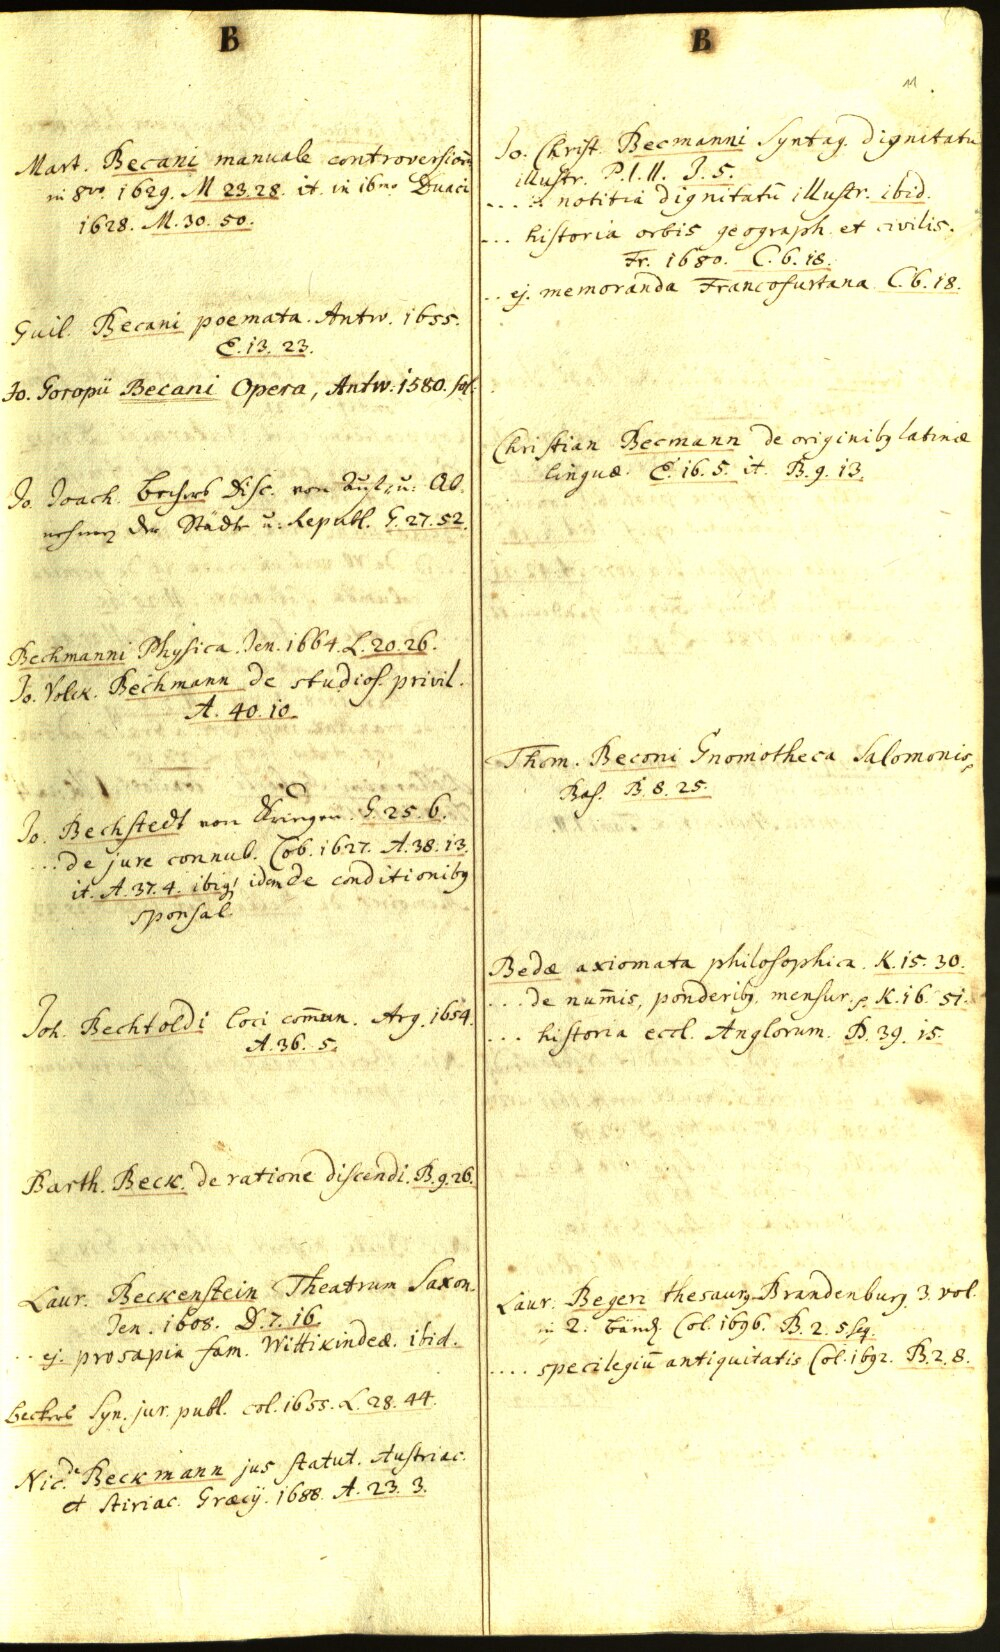 B
Mart. Becani manuale controversiorū
in 8vo 1629. M 23.28. it. in 16mo Duaci
1628. M. 30. 50.
Guil. Becani poemata. Antw. 1655.
E. 13. 23.
Jo. Goropii Becani Opera, Antw. 1580. fol.
Jo. Joach. Bechers Disc. von Auf- u. Ab-
nehmen der Städte u. Republ. G. 27. 52.
Bechmanni Physica. Jen. 1664. L. 20. 26.
Jo. Volck. Bechmann de studios. privil.
A. 40. 10.
Jo. Bechstedt von G. 25. 6.
... de jure connub. Cob. 1627. A. 38. 13.
it. A. 37. 4. ibiq; idem de conditionibq
sponsal.
Joh. Bechtoldi loci com̄un. Arg. 1654.
A. 36. 5.
Barth. Beck. de ratione discendi. B. 9. 26.
Laur. Beckenstein Theatrum Saxon.
Jen. 1608. D. 7. 16.
.. ej. prosapia fam. Wittikindeæ. ibid.
Beckers Syn. jur. publ. col. 1655. L. 28. 44.
Nic. de Beckmann jus statut. Austriac.
et Stiriac. Græcij. 1688. A. 23. 3.
B
11.
Jo. Christ. Becmanni Syntag. dignitatū
illustr. P. I. II. J. 5.
.... notitia dignitatū illustr. ibid.
... historia orbis geograph. et civilis.
Fr. 1680. C. 6. 18.
.. ej. memoranda Francofurtana C. 6. 18.
Christian Becmann de originibq latinæ
linguæ. E. 16. 5. it. B. 9. 13.
Thom. Beconi Gnomotheca Salomonis,
Bas. B. 8. 25.
Bedæ axiomata philosophica. K. 15. 30.
... de num̄is, ponderibq, mensur. K. 16. 51.
... historia eccl. Anglorum. D. 39. 15.
Laur. Begeri thesaurq Brandenburg. 3. vol.
in 2. Bänd. Col. 1696. B. 2. 5 seq.
.... specilegiū antiquitatis Col. 1692. B. 2. 8.